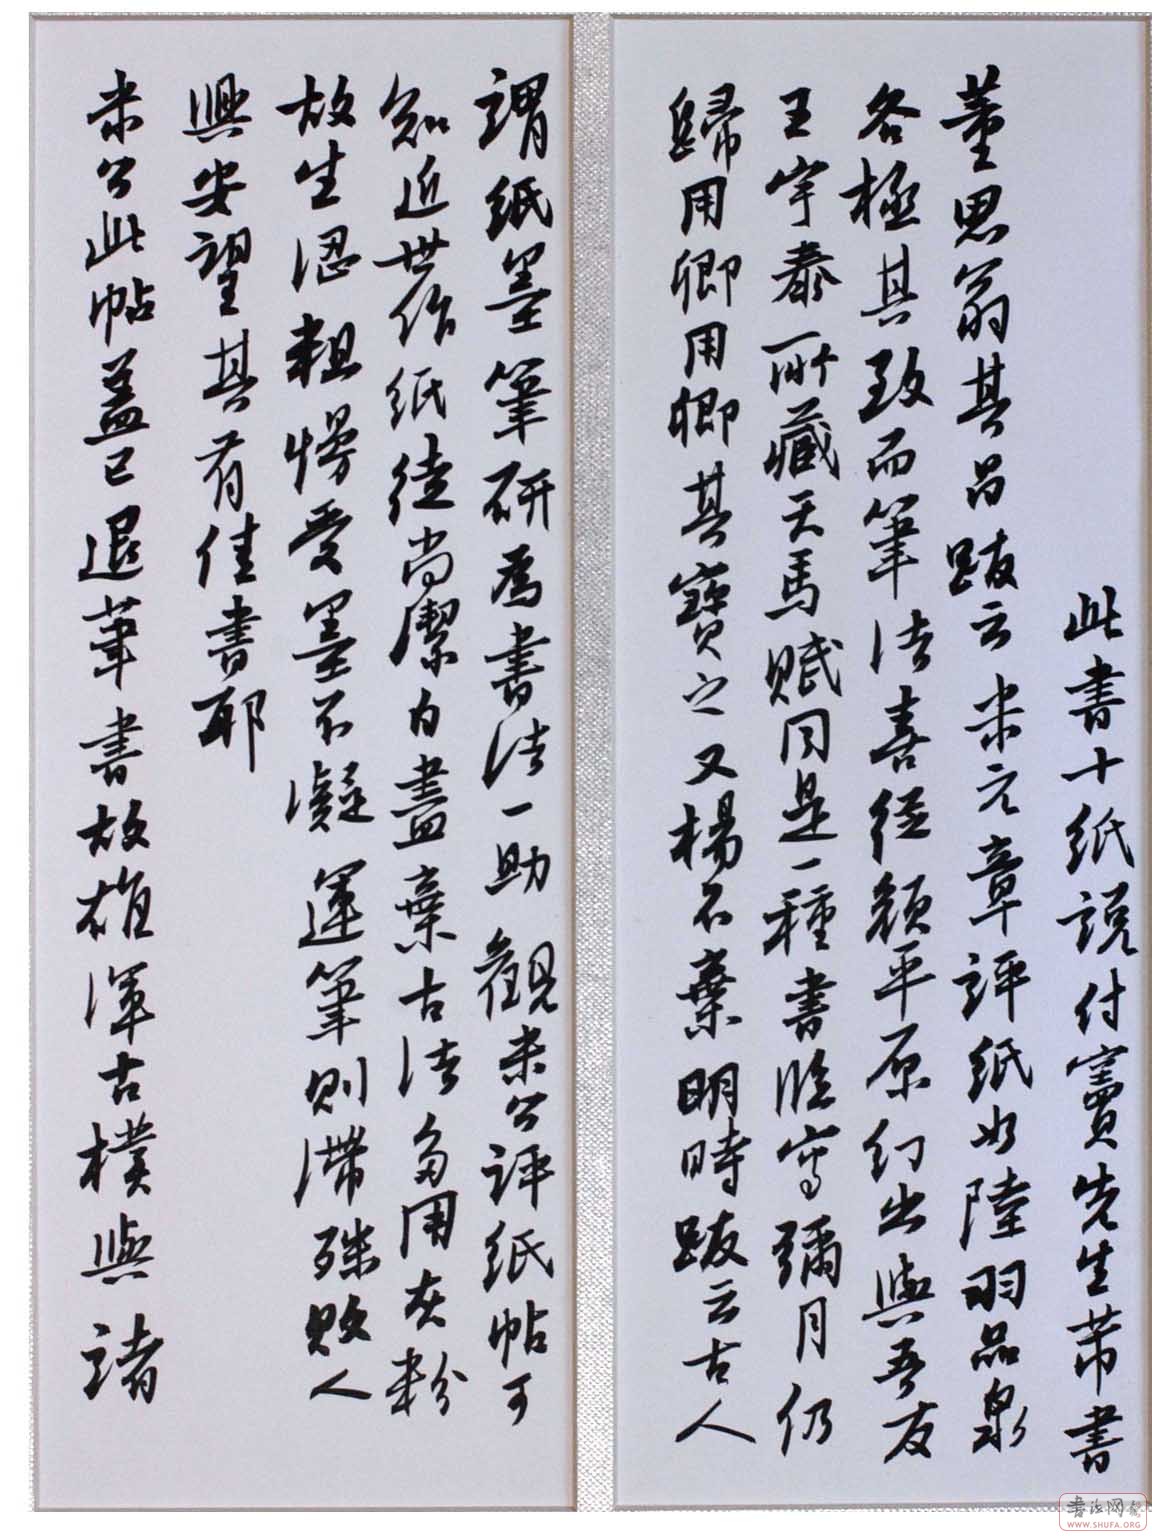 此書十紙説付寳先生芾書
董思翁其昌跋云米元章評紙如陸羽品泉
各極其致而筆法喜從顔平原幻出與吾友
王宇泰所藏天馬賦同是一種書臨寫彌月仍
歸用卿用卿其寳之又楊不棄明時跋云古人
謂紙墨筆研為書法一助觀米公評紙帖可
知近世作紙徒尚潔白盡棄古法多用灰粉
故生澀粗慢受墨不凝運筆則滯殊敗人
興安望其有佳書耶
米公此帖蓋已退筆書故雄渾古樸與諸
書法网
WWW.SHUFA.ORG